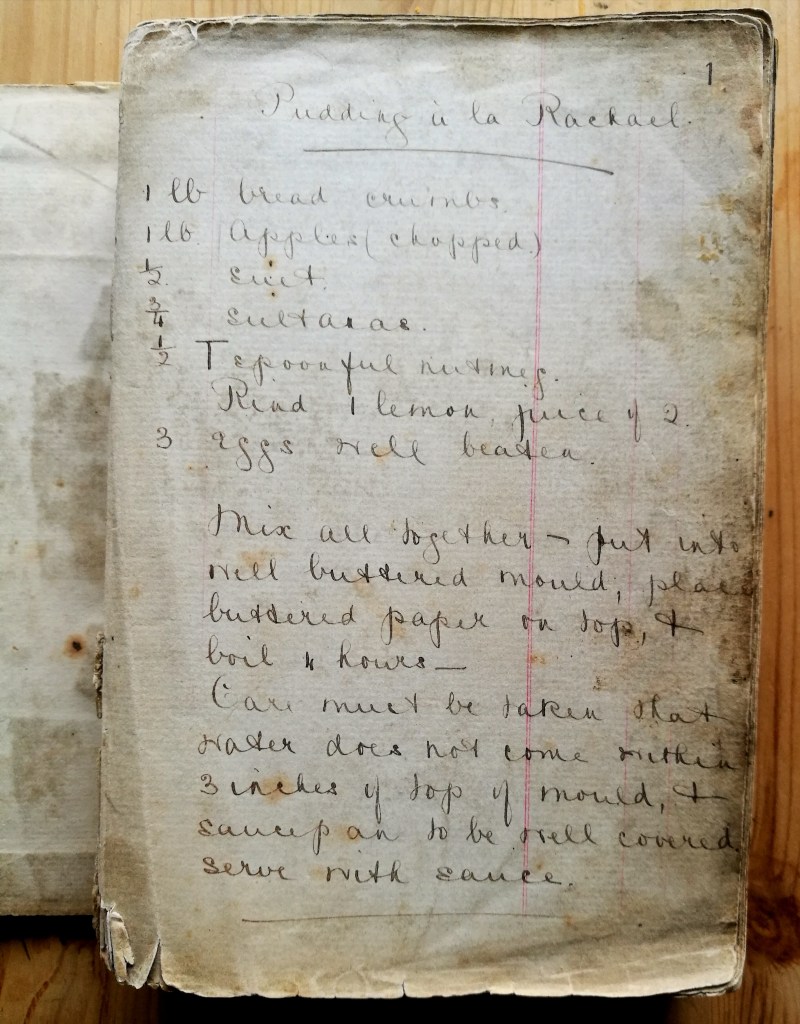 1
Pudding à la Rachael.
1 lb bread crumbs.
1 lb. Apples (chopped.)
1/2. suet.
3/4 sultanas.
1/2 Tspoonful nutmeg.
Rind 1 lemon, juice of 2.
3 eggs well beaten.
Mix all together – put into
well buttered mould; place
buttered paper on top, &
boil 4 hours —
Care must be taken that
water does not come within
3 inches of top of mould, &
saucepan to be well covered.
serve with sauce.